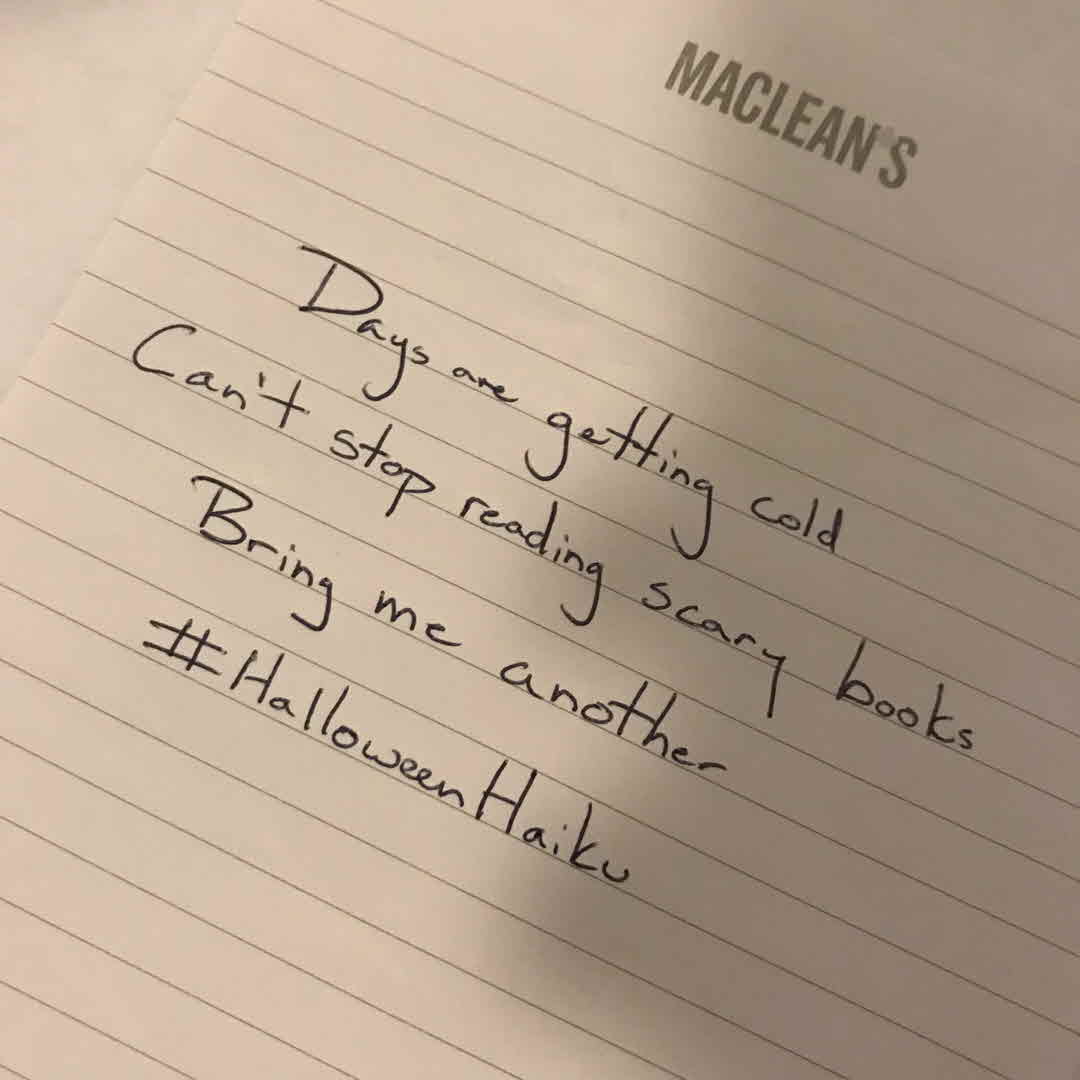 MACLEAN'S
Days are getting cold
Can't stop reading scary books
Bring me another
#HalloweenHaiku